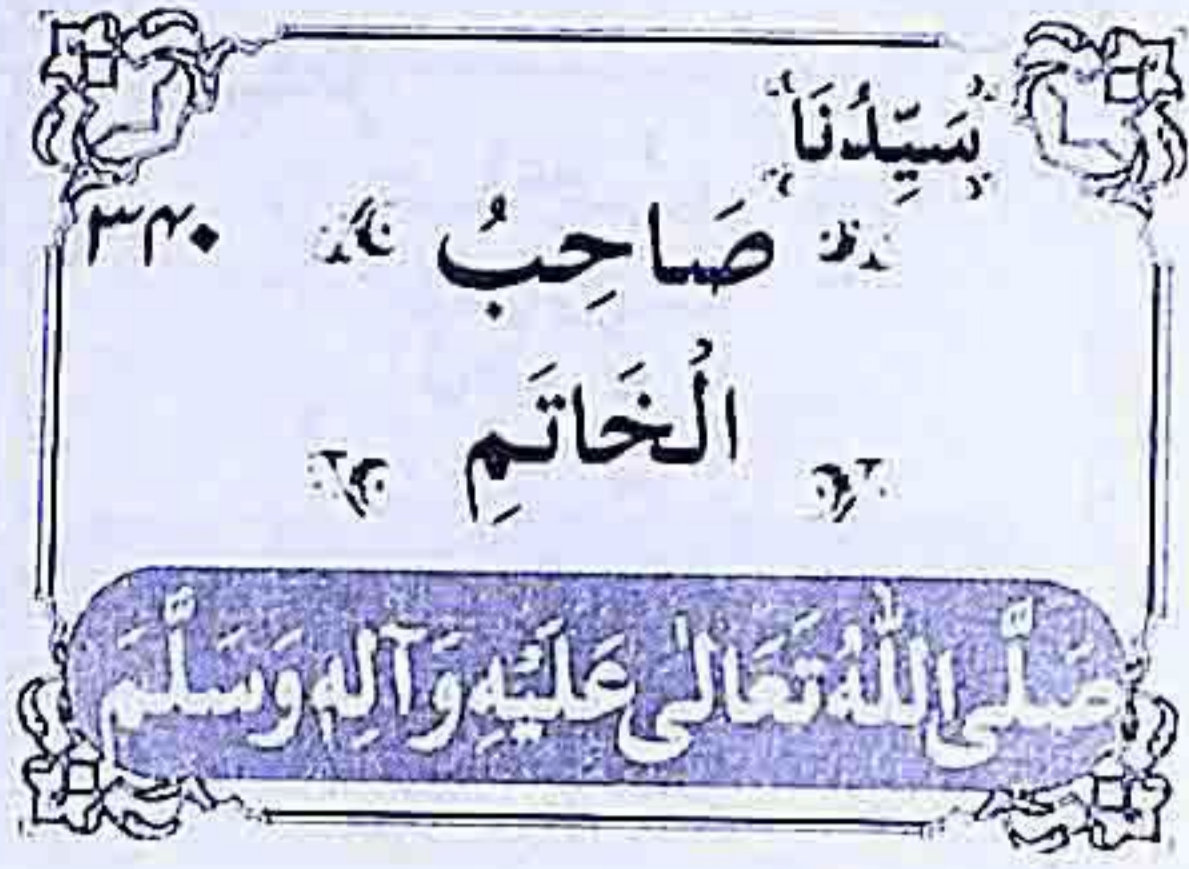 سَيِّدُنَا
صَاحِبُ ۳۴۰
الْخَاتَمِ
صَلَّى اللّٰهُ تَعَالٰى عَلَيْهِ وَآلِهٖ وَسَلَّمَ